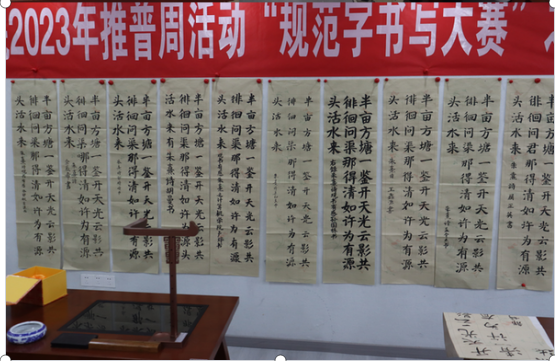 2023年推普周活动“规范字书写大赛”
半亩方塘一鉴开天光云影共
徘徊问渠那得清如许为有源
头活水来
半亩方塘一鉴开天光云影共
徘徊问渠那得清如许为有源
头活水来
半亩方塘一鉴开天光云影共
徘徊问渠那得清如许为有源
头活水来
半亩方塘一鉴开天光云影共
徘徊问渠那得清如许为有源
头活水来
半亩方塘一鉴开天光云影共
徘徊问渠那得清如许为有源
头活水来
半亩方塘一鉴开天光云影共
徘徊问渠那得清如许为有源
头活水来
半亩方塘一鉴开天光云影共
徘徊问渠那得清如许为有源
头活水来
半亩方塘一鉴开天光云影共
徘徊问渠那得清如许为有源
头活水来
半亩方塘一鉴开天光云影共
徘徊问渠那得清如许为有源
头活水来
半亩方塘一鉴开天光云影共
徘徊问 那得清如许为有源
头活水来